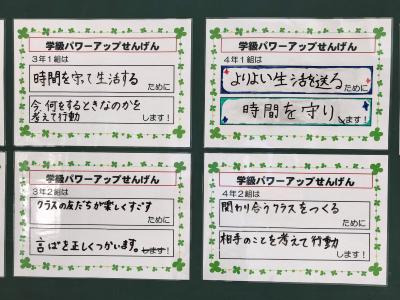 学級パワーアップせんげん
3年1組は
時間を守って生活する
ために
今、何をするときなのかを
考えて行動
します!
学級パワーアップせんげん
4年1組は
よりよい生活を送る
ために
時間を守り
します!
学級パワーアップせんげん
3年2組は
クラスの友だちが楽しくすごす
ために
言ばを正しくつかいます。
します!
学級パワーアップせんげん
4年2組は
関わり合うクラスをつくる
ために
相手のことを考えて行動
します!